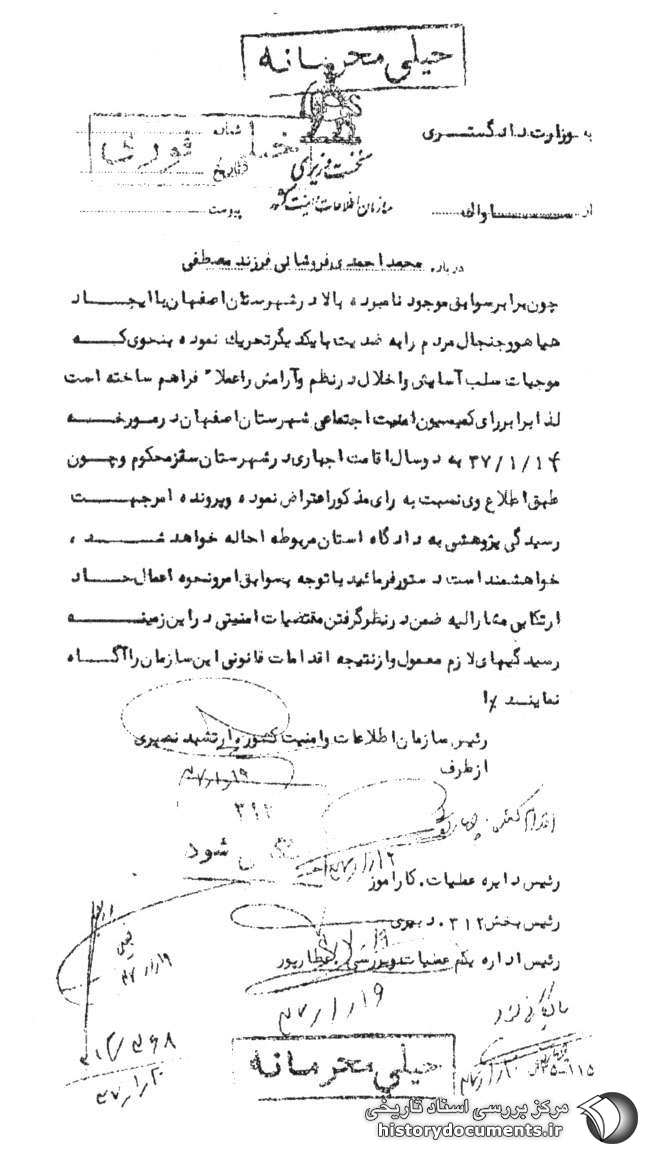 خیلی محرمانه
به وزارت دادگستری
شماره
خیلی فوری
تاریخ
نخست وزیری
سازمان اطلاعات و امنیت کشور
از ساواک
پیوست
درباره محمد احمدی فروشانی فرزند مصطفی
چون برابر سوابق موجود نامبرده بالا در شهرستان اصفهان با ایجاد
هیاهو و جنجال مردم را به ضدیت با یکدیگر تحریک نموده بنحوی که
موجبات سلب آسایش و اخلال در نظم و آرامش را عملاً فراهم ساخته است
لذا برابر رای کمیسیون امنیت اجتماعی شهرستان اصفهان در مورخه
۳۷/۱/۱۴ به دو سال اقامت اجباری در شهرستان سقز محکوم و چون
طبق اطلاع وی نسبت به رای مذکور اعتراض نموده و پرونده امر جهت
رسیدگی پژوهشی به دادگاه استان مربوطه احاله خواهد شد ،
خواهشمند است دستور فرمائید با توجه بسوابق امر و نحوه اعمال حاد
ارتکابی مشارالیه ضمن در نظر گرفتن مقتضیات امنیتی در این زمینه
رسیدگیهای لازم معمول و از نتیجه اقدامات قانونی این سازمان را آگاه
نمایند
رئیس سازمان اطلاعات و امنیت کشور ارتشبد نصیری
از طرف
۴۷/۱/۱۹
۳۱۲
شود
رئیس دایره عملیات . کارآموز
رئیس بخش ۳۱۲ . دبیری
رئیس اداره یکم عملیات و بررسی . عطارپور
۴۷/۱/۱۹
۴۷/۱/۱۹
۳۱۲/۲۶۸
۴۷/۱/۲۰
بایگانی شود
۴۷/۱/۲۰
۳۵-۱۱۵
خیلی محرمانه
مرکز بررسی اسناد تاریخی
historydocuments.ir